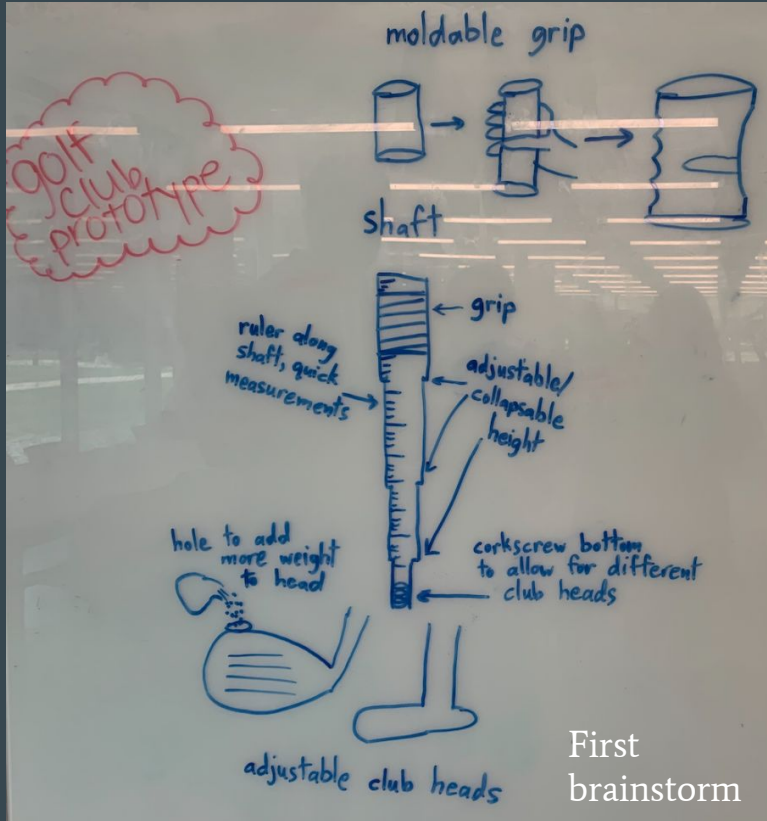 moldable grip
golf
club
prototype
shaft
grip
ruler along
shaft, quick
measurements
adjustable/
collapsable
height
hole to add
more weight
to head
corkscrew bottom
to allow for different
club heads
adjustable club heads
First
brainstorm